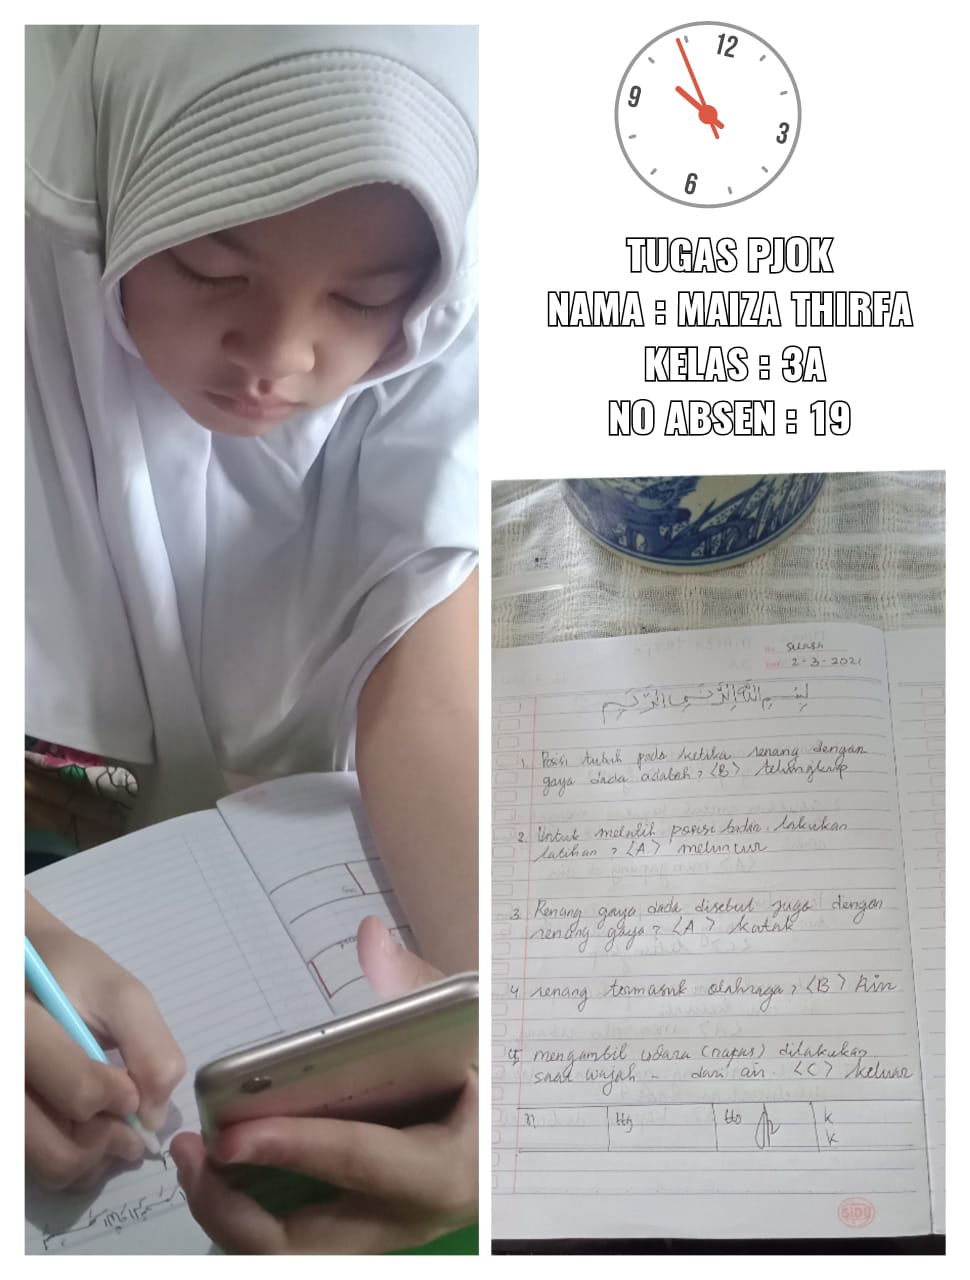 12
9
3
6
TUGAS PJOK
NAMA : MAIZA THIRFA
KELAS : 3A
NO ABSEN : 19
selasa
2-3-2021
بسم الله الرحمن الرحيم
1. Posisi tubuh pada ketika renang dengan
gaya dada adalah, <B> telungkup
2. Untuk melatih posisi badan lakukan
latihan, <A> meluncur
3. Renang gaya dada disebut juga dengan
renang gaya, <A> katak
4 renang termasuk olahraga, <B> Air
5 mengambil udara (napas) dilakukan
saat wajah - dari air. <C> keluar
n
ttg
tto
k
k
SIDU